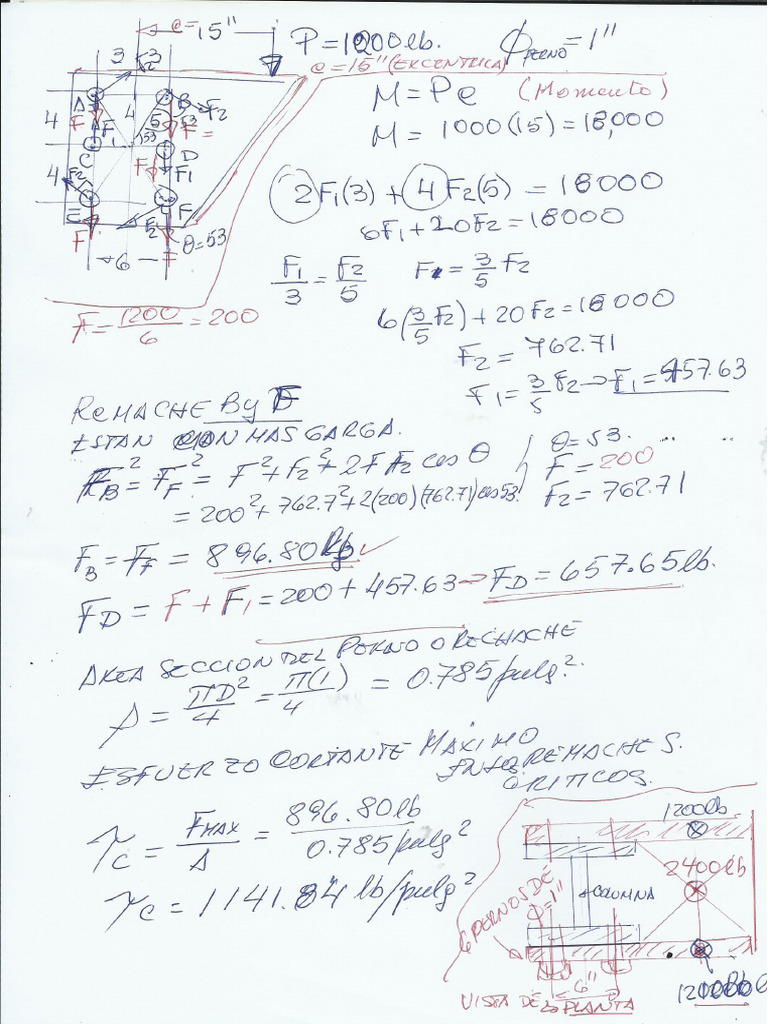 e=15"
P=1200lb. ϕPERNO=1"
e=15"(EXCENTRICA)
3 3
A B F2
4 4 5
F F1 53 F=
C D F1
4 F2 F
E F F2
F F θ=53
6
F = 1200/6 = 200
M=Pe (Momento)
M= 1000(15)=18,000
2F1(3) + 4F2(5) = 18000
6F1+20F2=18000
F1/3 = F2/5 F1= 3/5 F2
6(3/5 F2)+20F2=18000
F2= 762.71
F1=3/5 F2→F1=457.63
REMACHE B y F
ESTAN CON MAS CARGA.
FB²=FF²= F²+F2²+2FF2 cos θ
=200²+762.7²+2(200)(762.71)cos53
θ=53.
F=200
F2=762.71
FB=FF=896.80 lb ✓
FD=F+F1=200+457.63→FD=657.65lb.
AREA SECCION DEL PERNO O REMACHE
A= πD²/4=π(1)/4 = 0.785pulg².
ESFUERZO CORTANTE MAXIMO
EN LOS REMACHES.
CRITICOS.
τc= FMAX/A = 896.80lb/0.785pulg²
τc=1141.84 lb/pulg²
1200lb.
2400lb
COLUMNA
6 PERNOS DE
ϕ=1"
6"
VISTA DE PLANTA
1200lb